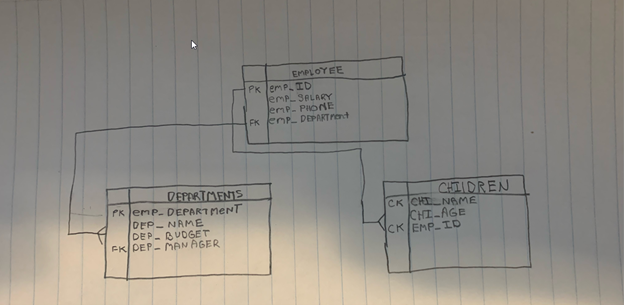 EMPLOYEE
PK emp_ID
emp_SALARY
emp_PHONE
FK emp_DEPARTment
DEPARTMENTS
PK emp_DEPARTMENT
DEP_NAME
DEP_BUDGET
FK DEP_MANAGER
CHILDREN
CK CHI_NAME
CHI_AGE
CK EMP_ID